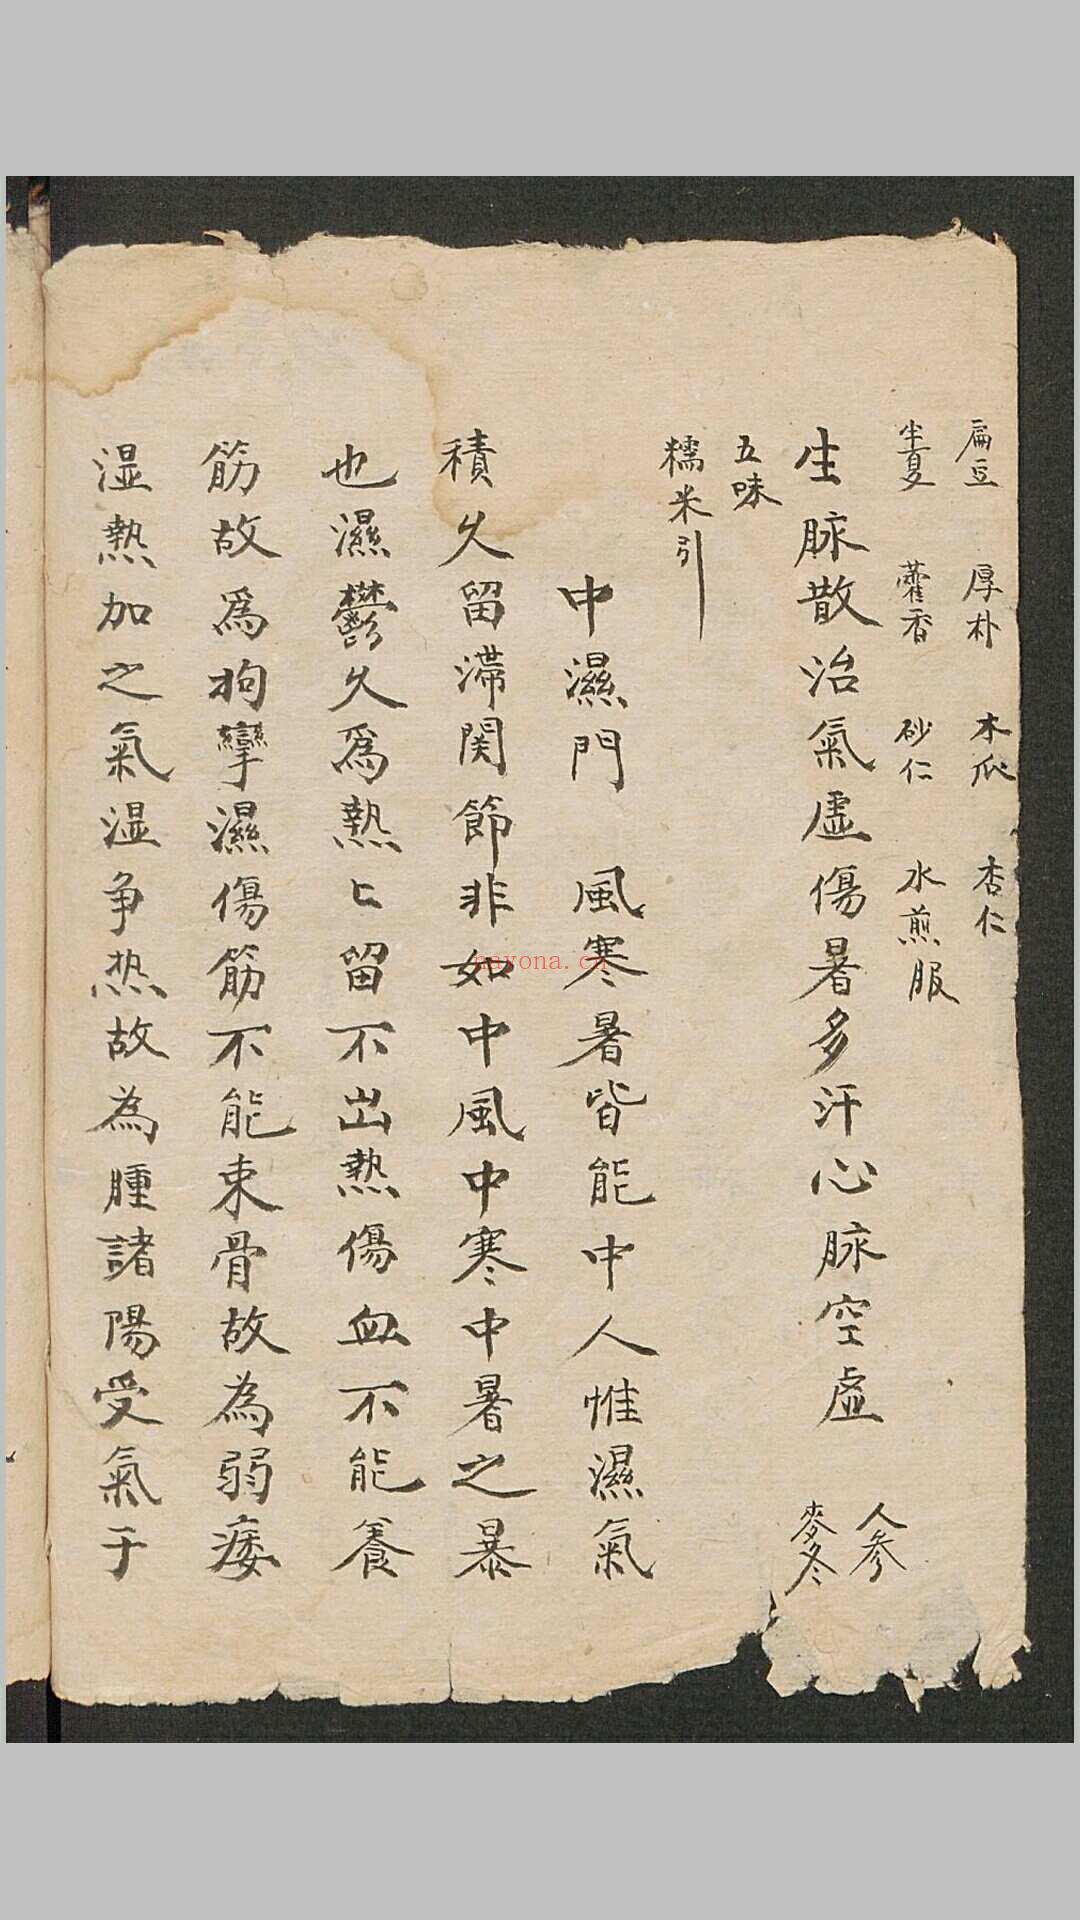 扁豆 厚朴 木瓜 杏仁
半夏 藿香 砂仁 水煎服
生脉散治氣虛傷暑多汗心脉空虛 人參
麥冬
五味
糯米引
中濕門 風寒暑皆能中人惟濕氣
積久留滯関節非如中風中寒中暑之暴
也濕鬱久爲熱〻留不出熱傷血不能養
筋故爲拘攣濕傷筋不能束骨故為弱痿
湿熱加之氣湿争热故為腫諸陽受氣于
nayona.cn